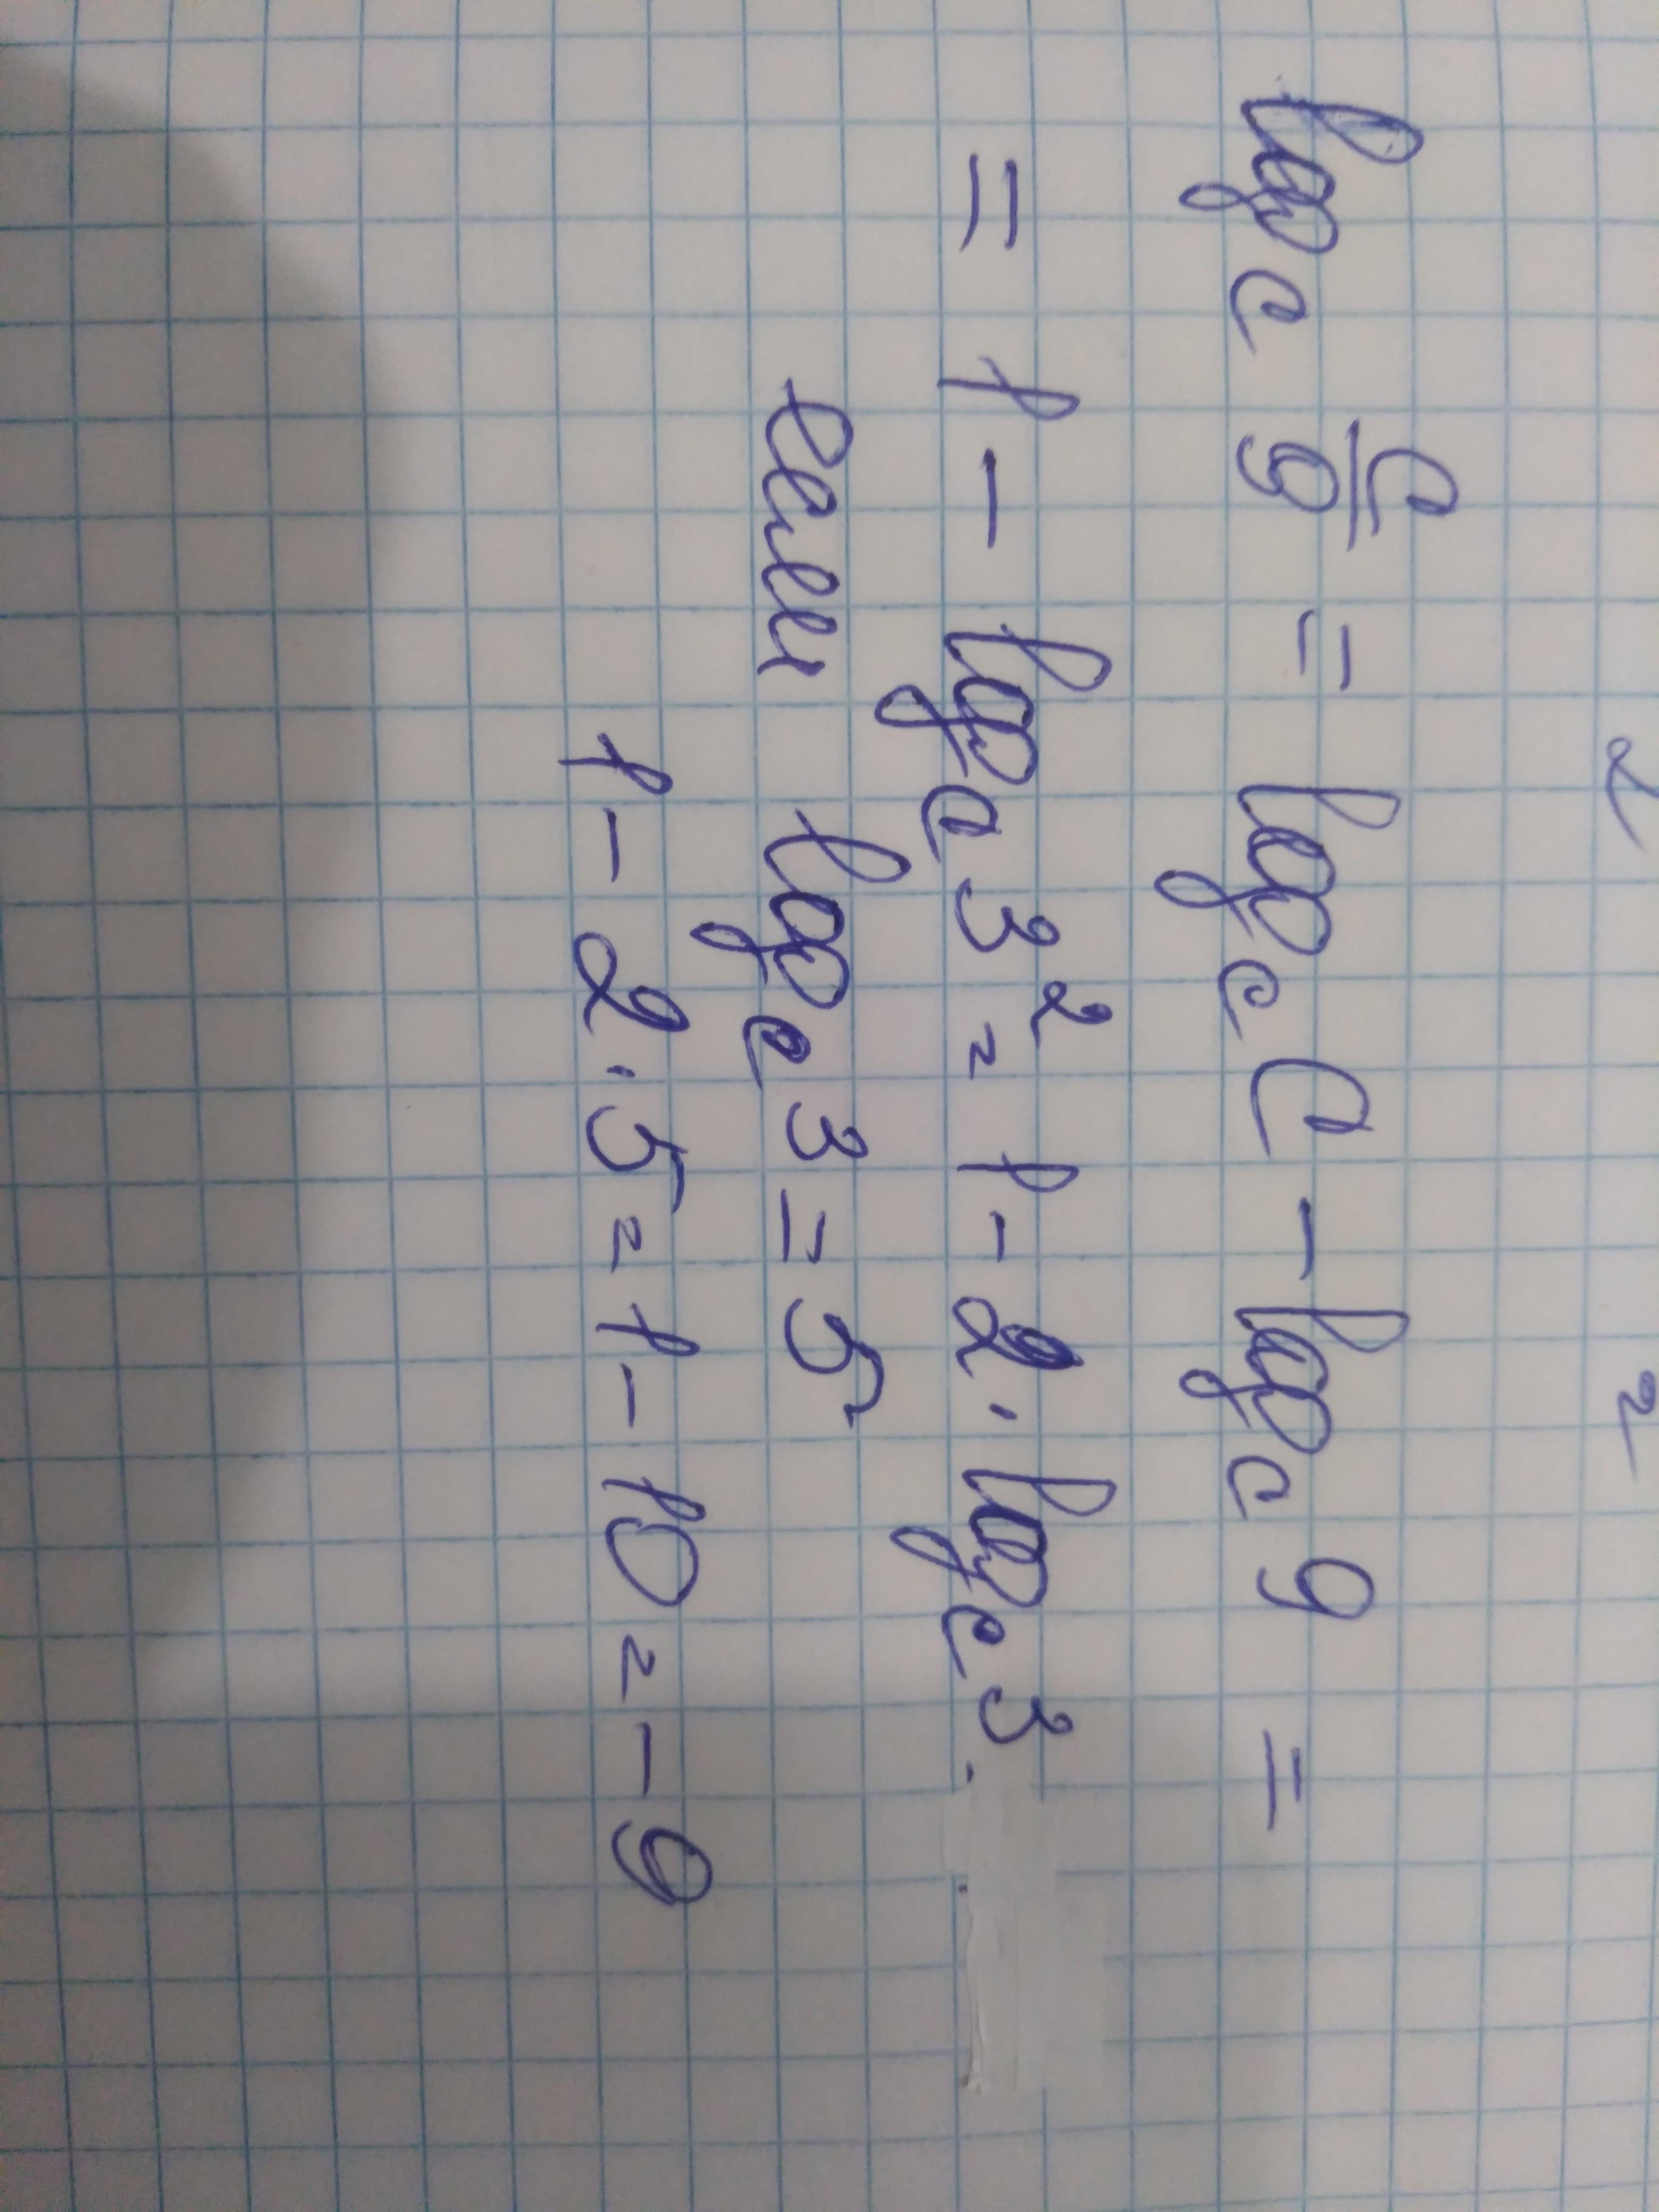 log_c c/9 = log_c c - log_c 9 =
= 1 - log_c 3² = 1 - 2 · log_c 3.
если log_c 3 = 5
1 - 2 · 5 = 1 - 10 = -9